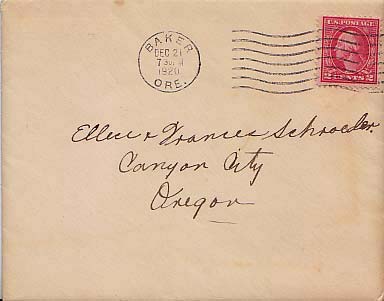 BAKER
DEC 21
7 30 M
1920
ORE.
U.S. POSTAGE
2 CENTS 2
Ellen & Frances Schroeder
Canyon City
Oregon